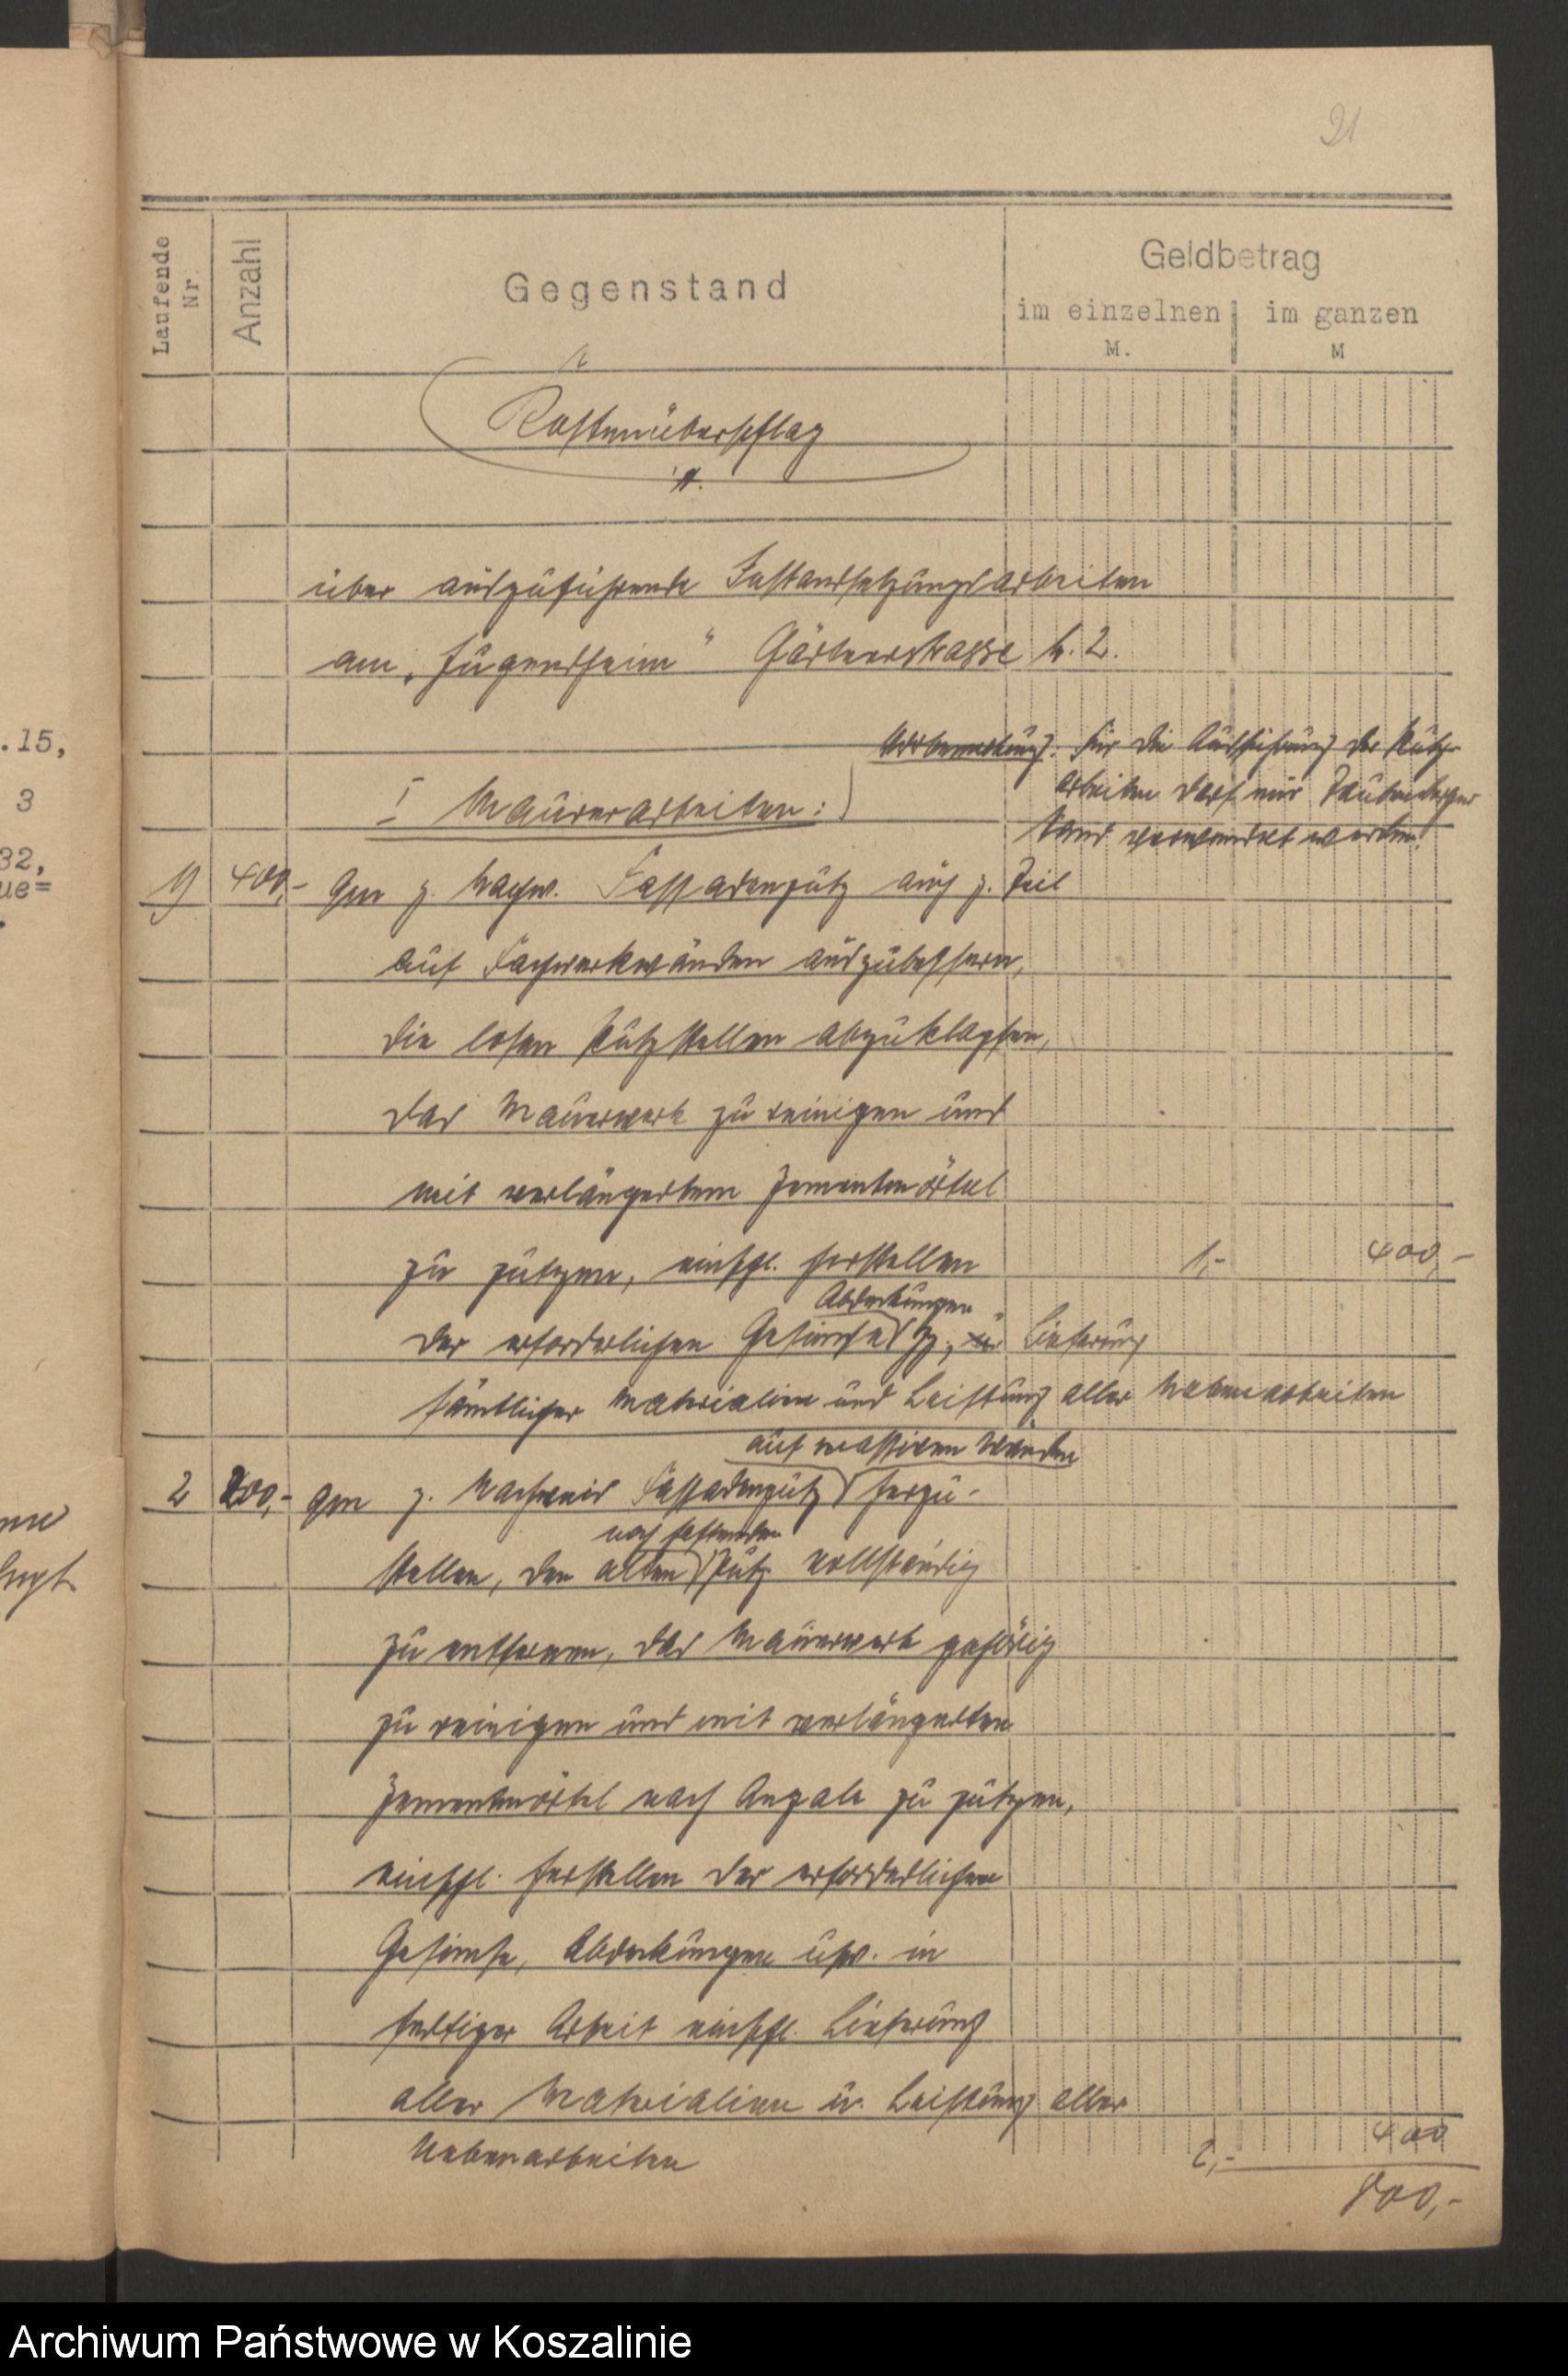 21
Laufende Nr.
Anzahl
Gegenstand
Geldbetrag
im einzelnen
im ganzen
M.
M
Kostenüberschlag
über auszuführende Instandsetzungsarbeiten
am „Jugendheim" Gärtnerstrasse N. 2.
Vorbemerkung: Für die Ausführung der Putz-
arbeiten darf nur
Sand verwendet werden.
I Maurerarbeiten:
1) 400,- qm z. Fassadenputz auch z. Teil
auf Fachwerkwänden auszubessern,
die losen Putzstellen abzuklopfen,
das Mauerwerk zu reinigen und
mit verlängertem Zementmörtel
zu putzen, einschl. herstellen 1,- 400,-
Abdeckungen
der erforderlichen Gesimse Lieferung
sämtlicher Materialien und Leistung aller Nebenarbeiten
auf massiven Wänden
2 200,- qm z. Nachweis Fassadenputz herzu-
noch festsitzenden
stellen, den alten Putz vollständig
zu entfernen, das Mauerwerk gehörig
zu reinigen und mit verlängerten
Zementmörtel nach Angabe zu putzen,
einschl. herstellen der erforderlichen
Gesimse, Abdeckungen usw. in
fertiger Arbeit einschl. Lieferung
aller Materialien u. Leistung aller
Nebenarbeiten 2,- 400
800,-
.15,
3
32,
ue=
Archiwum Państwowe w Koszalinie